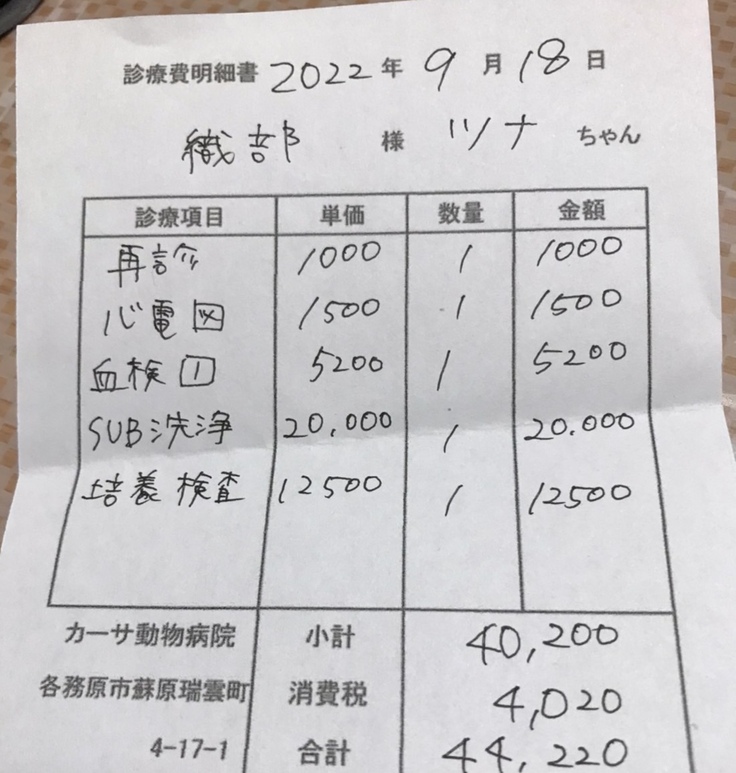 診療費明細書 2022年 9月 18日
織部 様 ツナ ちゃん
診療項目 単価 数量 金額
再診 1000 1 1000
心電図 1500 1 1500
血検 1 5200 1 5200
SUB洗浄 20,000 1 20,000
培養検査 12500 1 12500
カーサ動物病院 小計 40,200
各務原市蘇原瑞雲町 消費税 4,020
4-17-1 合計 44,220